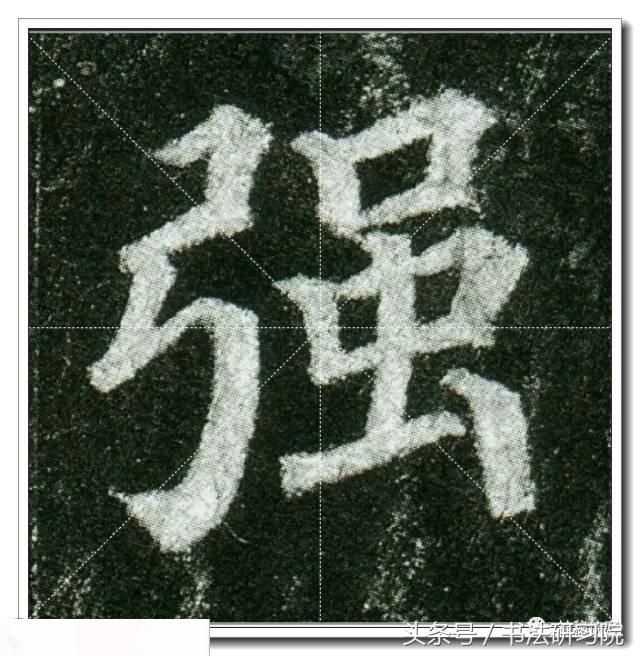 强
头条号 / 书法研习院